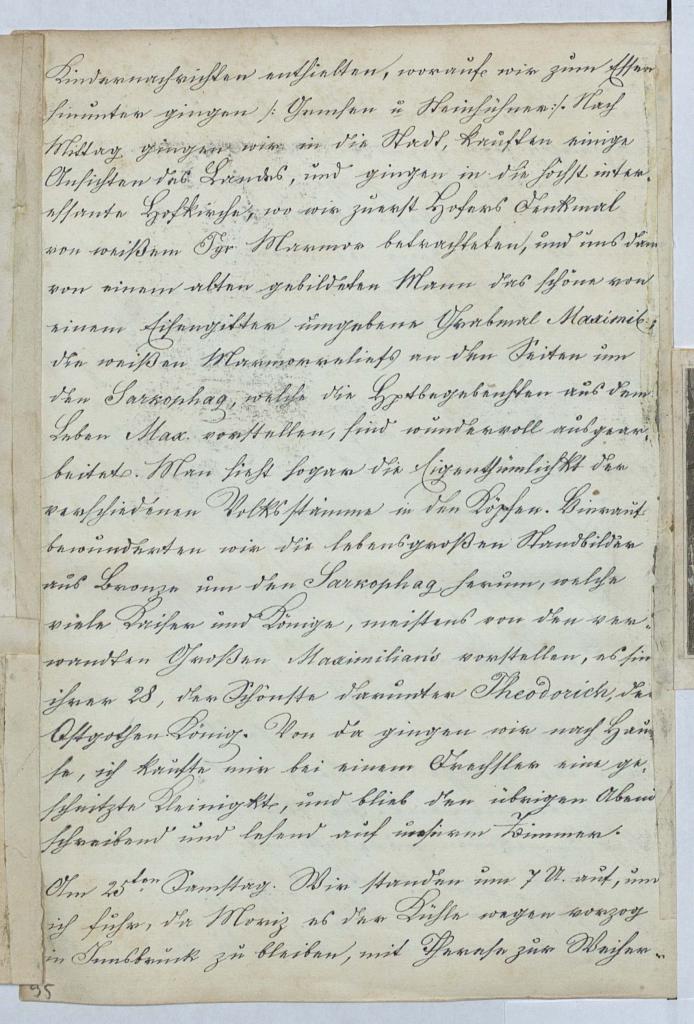 Kindernachrichten enthielten, worauf wir zum Essen
hinunter gingen /: Gemsen u Steinhühner :/. Nach
Mittag gingen wir in die Stadt, kauften einige
Ansichten des Landes, und gingen in die höchst inter-
essante Hofkirche, wo wir zuerst Hofers Denkmal
von weißem Tyr Marmor betrachteten, und uns dann
von einem alten gebildeten Mann das schöne von
einem Eisengitter umgebene Grabmal Maximil:;
die weißen Marmorreliefs an den Seiten um
den Sarkophag, welche die Hptbegebenhten aus dem
Leben Max. vorstellen, sind wundervoll ausgear-
beitet. Man sieht sogar die Eigenthümlichkt der
verschiedenen Volksstämme in den Köpfen. Hierauf
bewunderten wir die lebensgroßen Standbilder
aus Bronze um den Sarkophag herum, welche
viele Kaiser und Könige, meistens von den ver-
wandten Großen Maximilians vorstellen, es sin
ihrer 28, der Schönste darunter Theodorich, de
Ostgothen König. Von da gingen wir nach Hau
se, ich kaufte mir bei einem Drechsler eine ge-
schnitzte Kleinigkt, und blieb den übrigen Aben
schreibend und lesend auf unserm Zimmer.
Am 25ten Samstag. Wir standen um 7 U. auf, und
ich fuhr, da Moriz es der Kühle wegen vorzog
in Innsbruck zu bleiben, mit Therese zur Weiher-
95